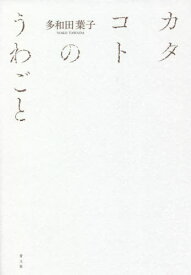 カタコトの
うわごと
多和田葉子
YOKO TAWADA
青土社